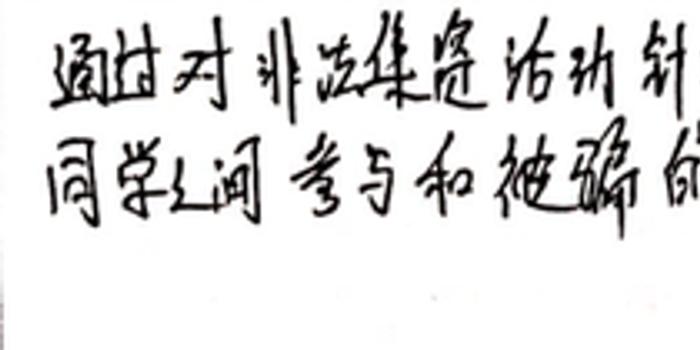 通过对非法集资活动针
同学之间参与和被骗的